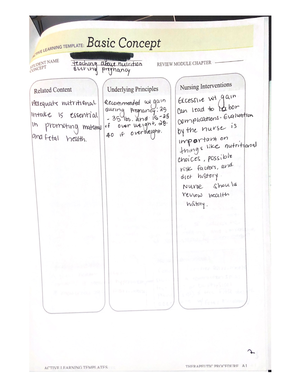 ACTIVE LEARNING TEMPLATE: Basic Concept
STUDENT NAME
CONCEPT teaching about nutrition during pregnancy
REVIEW MODULE CHAPTER
Related Content
Adequate nutritional
intake is essential
in promoting maternal
and fetal health.
Underlying Principles
Recommended wt gain
during pregnancy: 25
- 35 lbs. and 15-25
if over weight, 28-
40 if overweight.
Nursing Interventions
Excessive wt gain
can lead to labor
complications. Evaluation
by the nurse is
important on
things like nutritional
choices, possible
risk factors, and
diet history
Nurse should
review health
history.
2
ACTIVE LEARNING TEMPLATES
THERAPEUTIC PROCEDURE